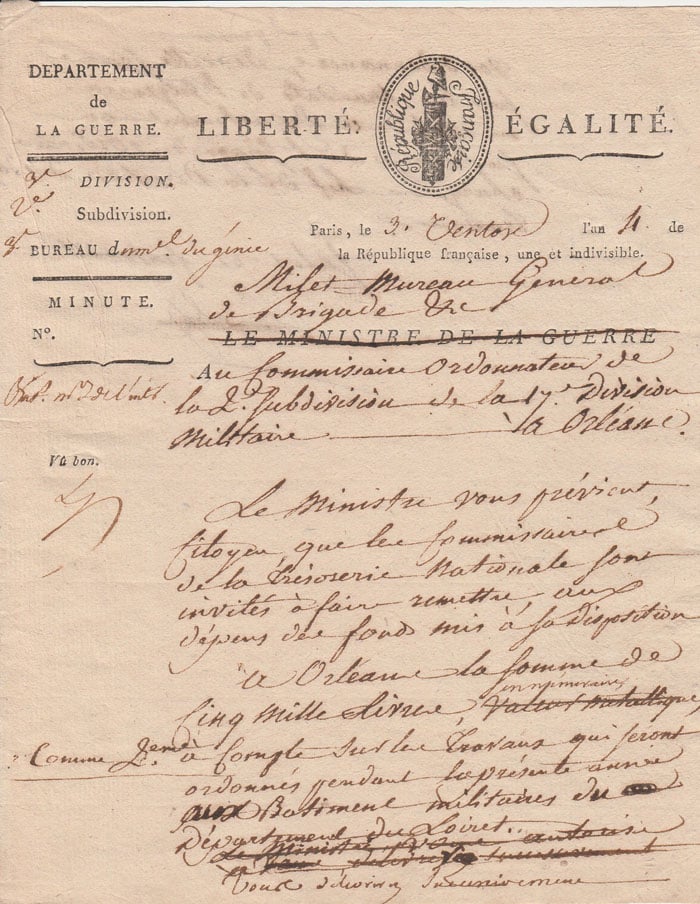 DEPARTEMENT
de
LA GUERRE.
LIBERTÉ.
République Française
ÉGALITÉ.
3e. DIVISION.
2e. Subdivision.
BUREAU du mel. du génie
MINUTE.
No.
Vû bon.
Paris, le 3. Ventose l'an 4 de
la République française, une et indivisible.
Milet Mureau Général
de Brigade &c
LE MINISTRE DE LA GUERRE
Au Commissaire Ordonnateur de
la 2e. Subdivision de la 17e. Division
Militaire à Orléans.
Le Ministre vous prévient,
Citoyen, que les Commissaires
de la Trésorerie Nationale sont
invités à faire remettre aux
dépens des fonds mis à sa disposition
à Orléans la somme de
en numéraire
Cinq Mille Livres, Valeur Métallique
Comme 2eme
à Compte sur les Travaux qui seront
ordonnés pendant la présente année
aux Bâtiment militaires du
Département du Loiret.
Le Ministre vous autorise